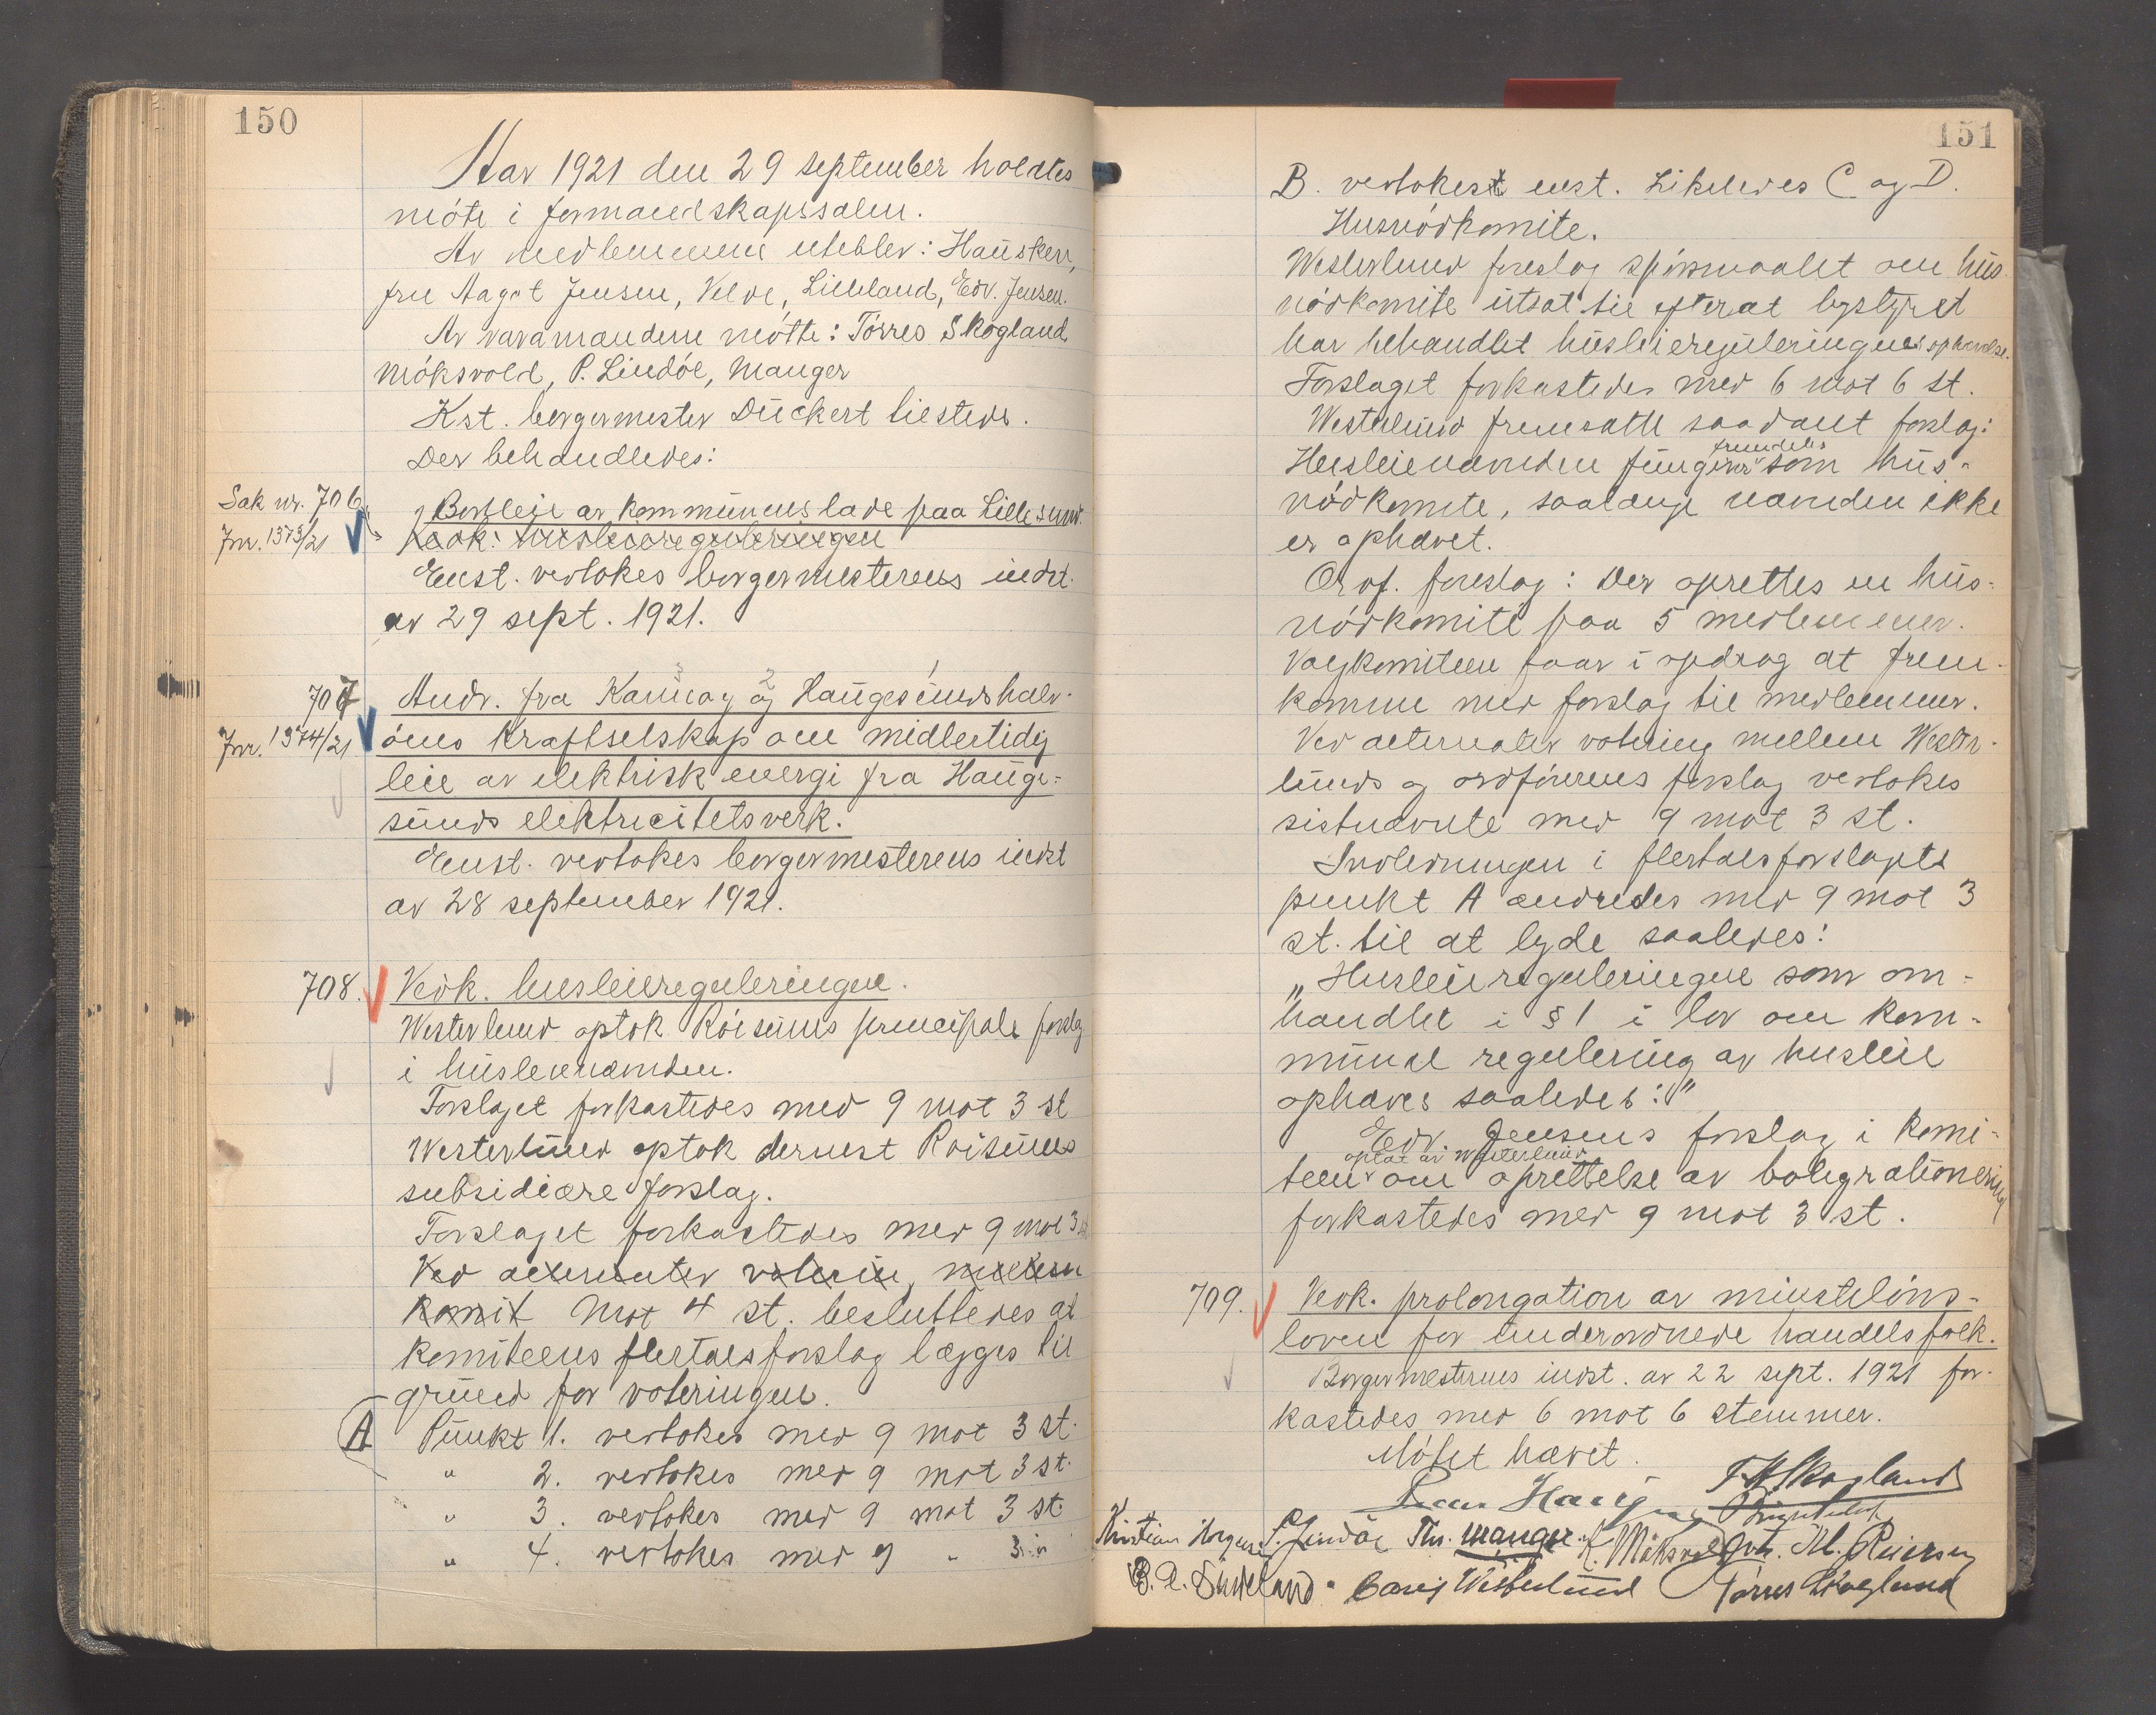 150
Aar 1921 den 29 september holdtes
møte i formandskapssalen.
Av medlemmene uteblev: Hausken,
fru Aagot Jensen, Velde, Lilleland, Edv. Jensen.
Av varamændene møtte: Tørres Skogland
Møksvold, P. Lindøe, Manger
Kst. borgermester Dückert tilstede.
Der behandledes:
Sak nr. 706
Jnr. 1373/21
Bortleie av kommunens lade paa Lillesund.
Vedk. husleiereguleringen
Enst. vedtokes borgermesterens indst.
av 29 sept. 1921.
707
Jnr. 1374/21
Andr. fra Karmøy og Haugesundshalv-
øens Kraftselskap om midlertidig
leie av elektrisk energi fra Hauge-
sunds elektricitetsverk.
Enst. vedtokes borgermesterens indst
av 28 september 1921.
708.
Vedk. husleiereguleringen.
Westerlund optok Røisunds principale forslag
i husleienævnden.
Forslaget forkastedes med 9 mot 3 st
Westerlund optok dernest Røisunds
subsidiære forslag.
Forslaget forkastedes med 9 mot 3 st
Ved alternativ votering mellem
komit Mot 4 st. besluttedes at
komiteens flertalsforslag lægges til
grund for voteringen.
A Punkt 1. vedtokes med 9 mot 3 st.
" 2. vedtokes med 9 mot 3 st.
" 3. vedtokes med 9 mot 3 st.
" 4. vedtokes med 9 " 3 "
151
B. vedtokest enst. Likeledes C og D.
Husnødkomite.
Westerlund foreslog spørsmaalet om hus-
nødkomite utsat til efterat bystyret
har behandlet husleiereguleringens ophævelse.
Forslaget forkastedes med 6 mot 6 st.
Westerlund fremsatte saadant forslag:
fremdeles
Husleienævnden fungerer som hus-
nødkomite, saalænge nævnden ikke
er ophævet.
Ordf. foreslog: Der oprettes en hus-
nødkomité paa 5 medlemmer.
Valgkomiteen faar i opdrag at frem-
komme med forslag til medlemmer.
Ved alternativ votering mellem Wester-
lunds og ordførerens forslag vedtokes
sistnævnte med 9 mot 3 st.
Indledningen i flertalsforslagets
punkt A ændredes med 9 mot 3
st. til at lyde saaledes:
„Husleiereguleringen som om-
handlet i § 1 i lov om kom-
munal regulering av husleie
ophæves saaledes:"
Edv. Jensens forslag i komi-
optat av Westerlund
teen om oprettelse av boligrationering
forkastedes med 9 mot 3 st.
709.
Vedk. prolongation av mindsteløns-
loven for underordnede handelsfolk.
Borgermesterens indst. av 22 sept. 1921 for-
kastedes med 6 mot 6 stemmer.
Møtet hævet.
T. H. Skogland
Kristian P. Lindøe Thv. Manger K. Møksvold M. Reiersen
Westerlund Tørres Skogland